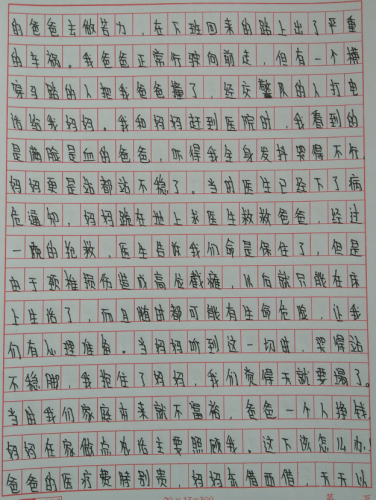 的爸爸去做苦力,在下班回来的路上出了严重
的车祸。我爸爸正常行驶向前走,但有一个横
穿马路的人把我爸爸撞了,经交警队的人打电
话给我妈妈。我和妈妈赶到医院时,我看到的
是满脸是血的爸爸,吓得我全身发抖哭得不行,
妈妈更是站都站不稳了。当时医生已经下了病
危通知,妈妈跪在地上求医生救救爸爸,经过
一晚的抢救,医生告诉我们命是保住了,但是
由于颈椎损伤造成高位截瘫,以后就只能在床
上生活了,而且随时都可能有生命危险,让我
们有心理准备。当妈妈听到这一切时,哭得站
不稳脚,我抱住了妈妈,我们觉得天就要塌了。
当时我们家庭本来就不富裕,爸爸一个人挣钱
妈妈在家做点农活主要照顾我。这下该怎么办!
爸爸的医疗费特别贵,妈妈东借西借,天天以
20×15=300